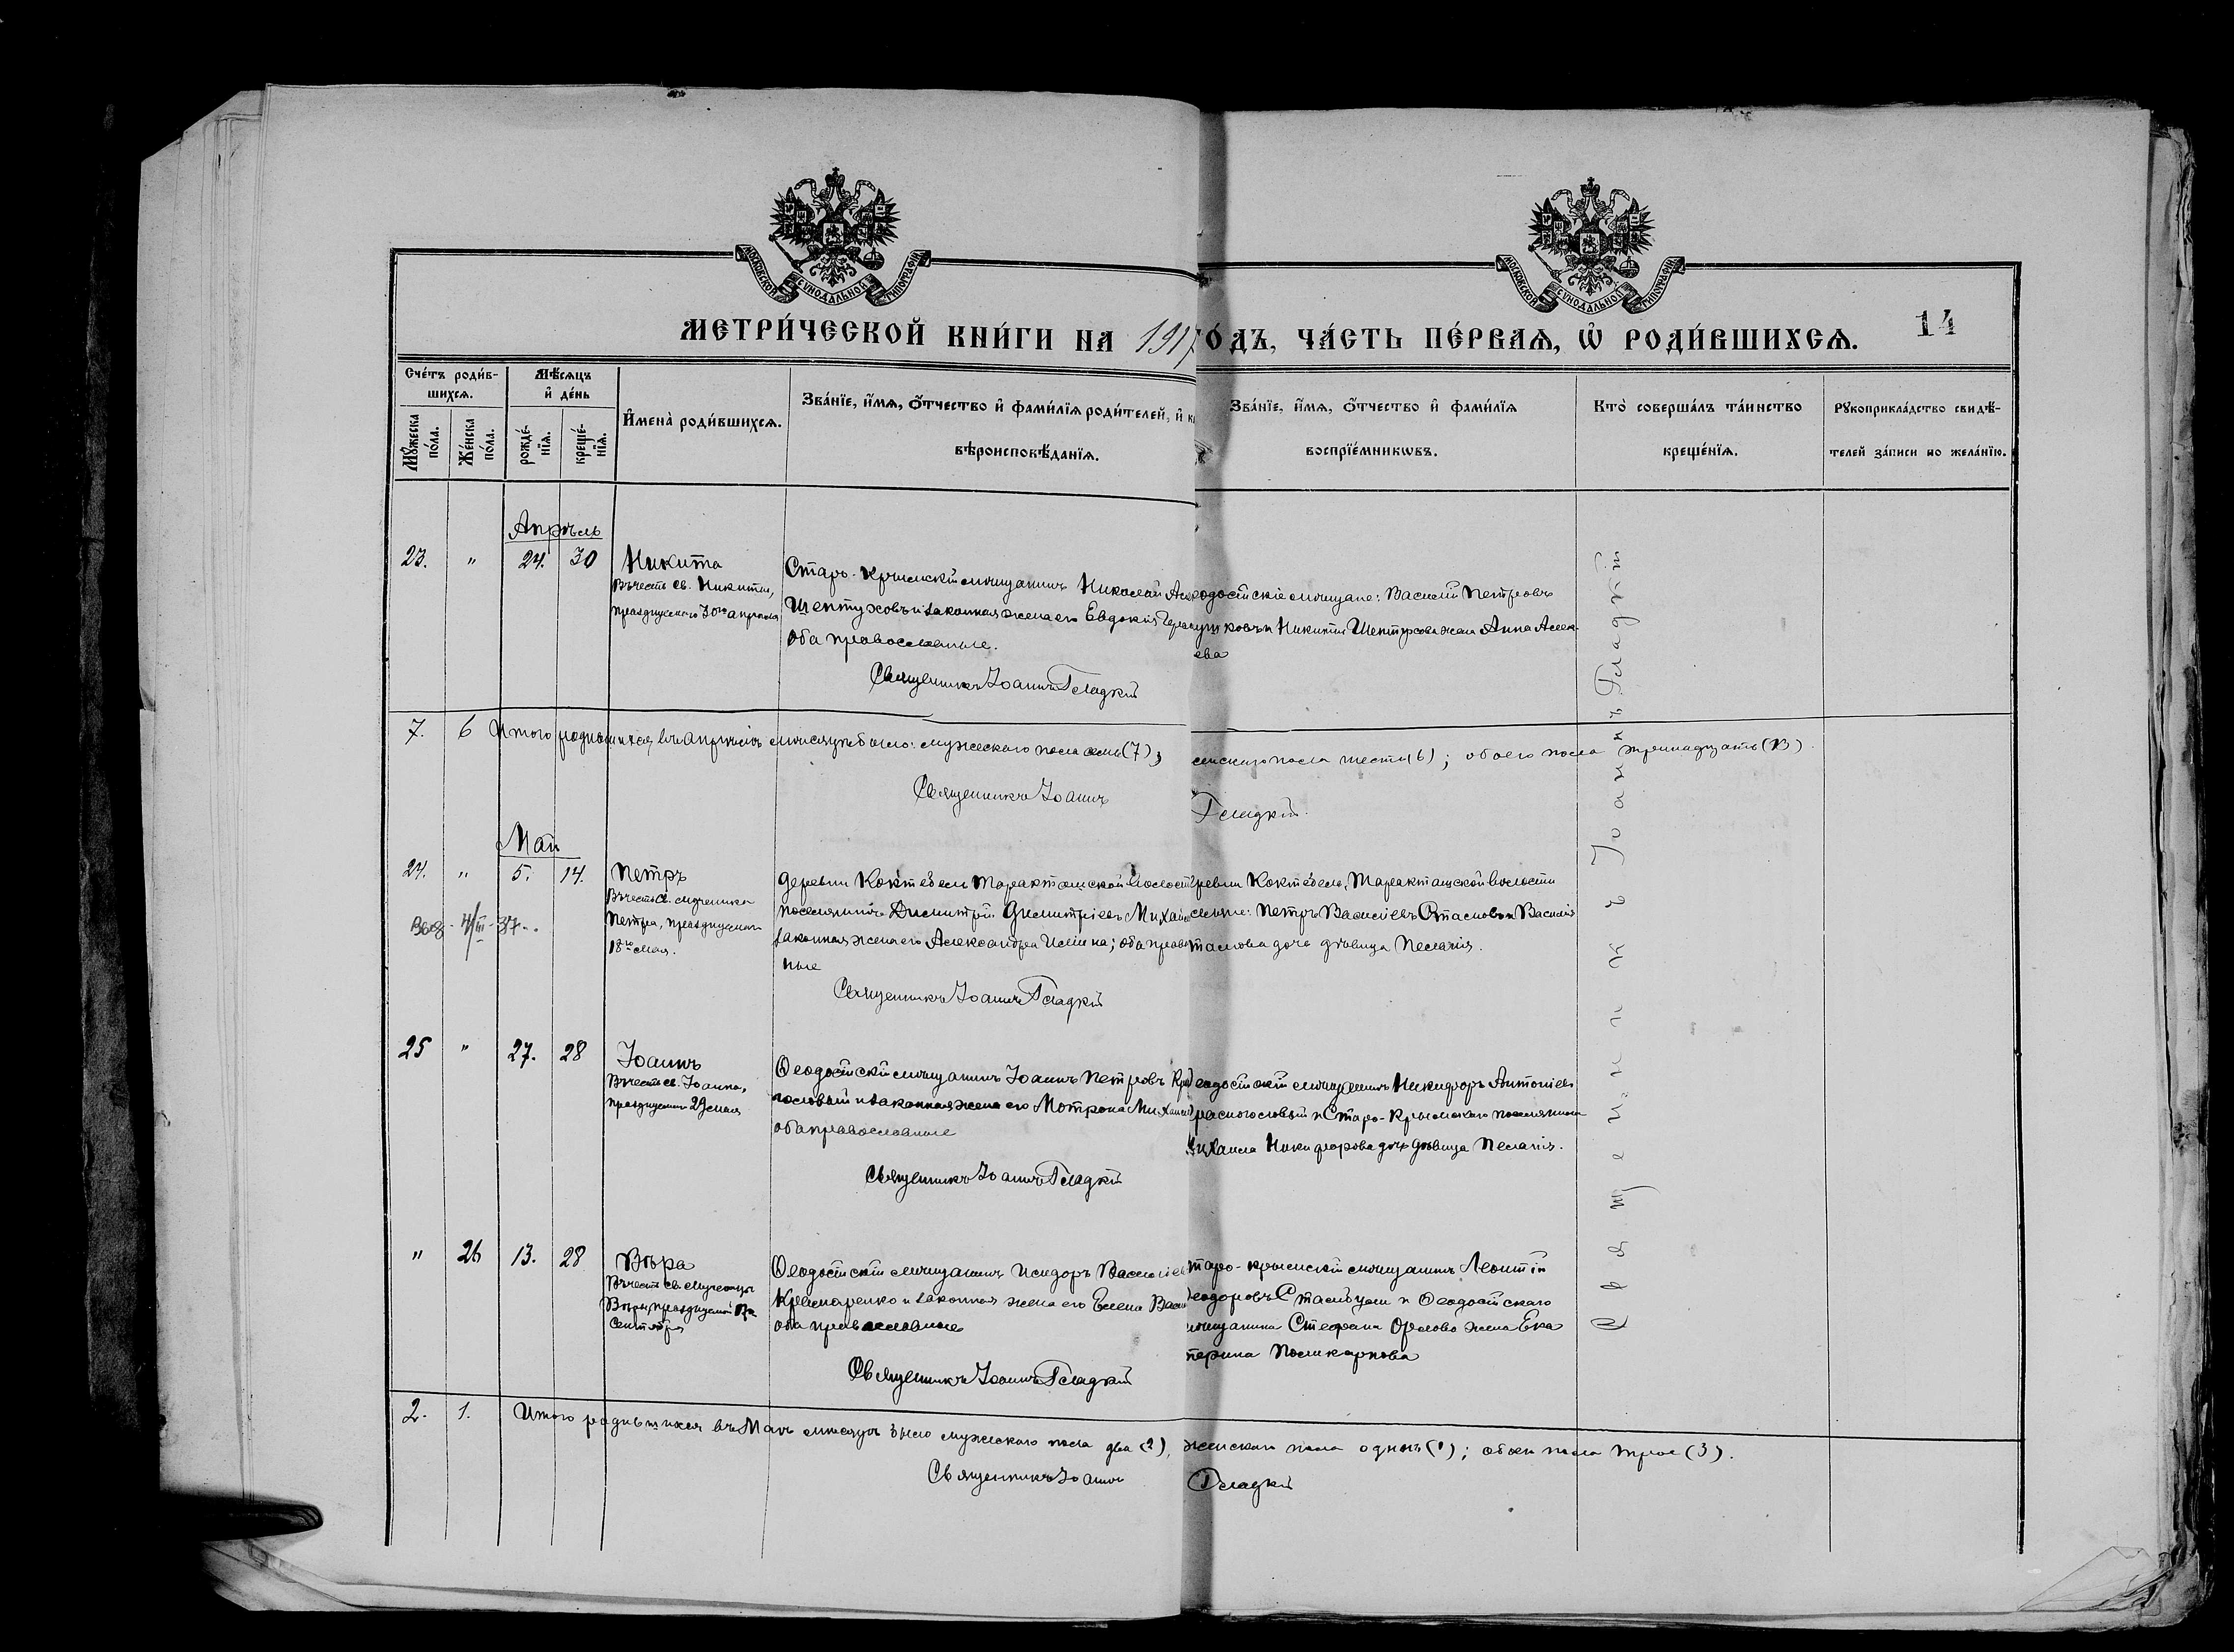 МОСКОВСКОЙ СѴНОДАЛЬНОЙ ТИПОГРАФІИ
МОСКОВСКОЙ СѴНОДАЛЬНОЙ ТИПОГРАФІИ
МЕТРИ́ЧЕСКОЙ КНИ́ГИ НА 1917
ГО́ДЪ, ЧА́СТЬ ПЕ́РВАѦ, Ѽ РОДИ́ВШИХСѦ.
14
Сче́тъ роди́в-
шихсѧ.
Мꙋ́жеска по́ла.
Же́нска по́ла.
Мѣ́сѧцъ
и҆ де́нь
рожде́-нїѧ.
креще́-нїѧ.
И҆мена̀ роди́вшихсѧ.
Зва́нїе, и҆́мѧ, ѻ҆́тчество и҆ фами́лїѧ роди́телей, и҆
вѣроисповѣ́данїѧ.
Зва́нїе, и҆́мѧ, ѻ҆́тчество и҆ фами́лїѧ
воспрїе́мникѡвъ.
Кто̀ соверша́лъ та́инство
креще́нїѧ.
Рꙋкоприкла́дство свидѣ́-
телей за́писи по жела́нїю.
Апрѣль
23. " 24. 30 Никита
Въ честь св. Никиты,
празднуемаго 30го апрѣля
Старо-Крымскій мѣщанинъ Николай
Шептуховъ и законная жена его Евдокія
оба православные.
Священникъ Іоаннъ Гладкій
еодосійскіе мѣщане: Василій Петровъ
и Никиты Шептухова жена Анна Алек-
ева
7. 6 Итого родившихся въ апрѣлѣ мѣсяцѣ было: мужескаго пола семь (7),
женскаго пола шесть (6); обоего пола тринадцать (13).
Священникъ Іоаннъ
Гладкій.
Май
24. " 5. 14. Петръ
Въ честь св. мученика
Петра, празднуемаго
18го мая.
4/III-37.
Деревни Коктебель Таракташской волости
поселянинъ Димитрій Димитріевъ
законная жена его Александра Ильина; оба право
ные
Священникъ Іоаннъ Гладкій
ревни Коктебель, Таракташской волости
Петръ Василіевъ Стамовъ и Василія
тамова дочь дѣвица Пелагія.
25 " 27. 28 Іоаннъ
Въ честь св. Іоанна,
празднуемаго 29 мая
Ѳеодосійскій мѣщанинъ Іоаннъ Петровъ
и законная жена его Мотрона
оба православные
Священникъ Іоаннъ Гладкій
еодосійскій мѣщанинъ Никифоръ Антоніевъ
и Старо-Крымскаго поселянина
Михаила Никифорова дочь дѣвица Пелагія.
" 26 13. 28 Вѣра
Въ честь св. мученицы
Вѣры, празднуемой
Сентября
Ѳеодосійскій мѣщанинъ Исидоръ Василіевъ
Крамаренко и законная жена его Елена
оба православные
Священникъ Іоаннъ Гладкій
таро-крымскій мѣщанинъ Леонтій
еодоровъ и Ѳеодосійскаго
мѣщанина Стефана Орлова жена Ека
терина Поликарпова
Священникъ Іоаннъ Гладкій
2. 1. Итого родившихся въ Маѣ мѣсяцѣ было мужескаго пола два (2),
женскаго пола одинъ (1); обоего пола трое (3).
Священникъ Іоаннъ
Гладкій